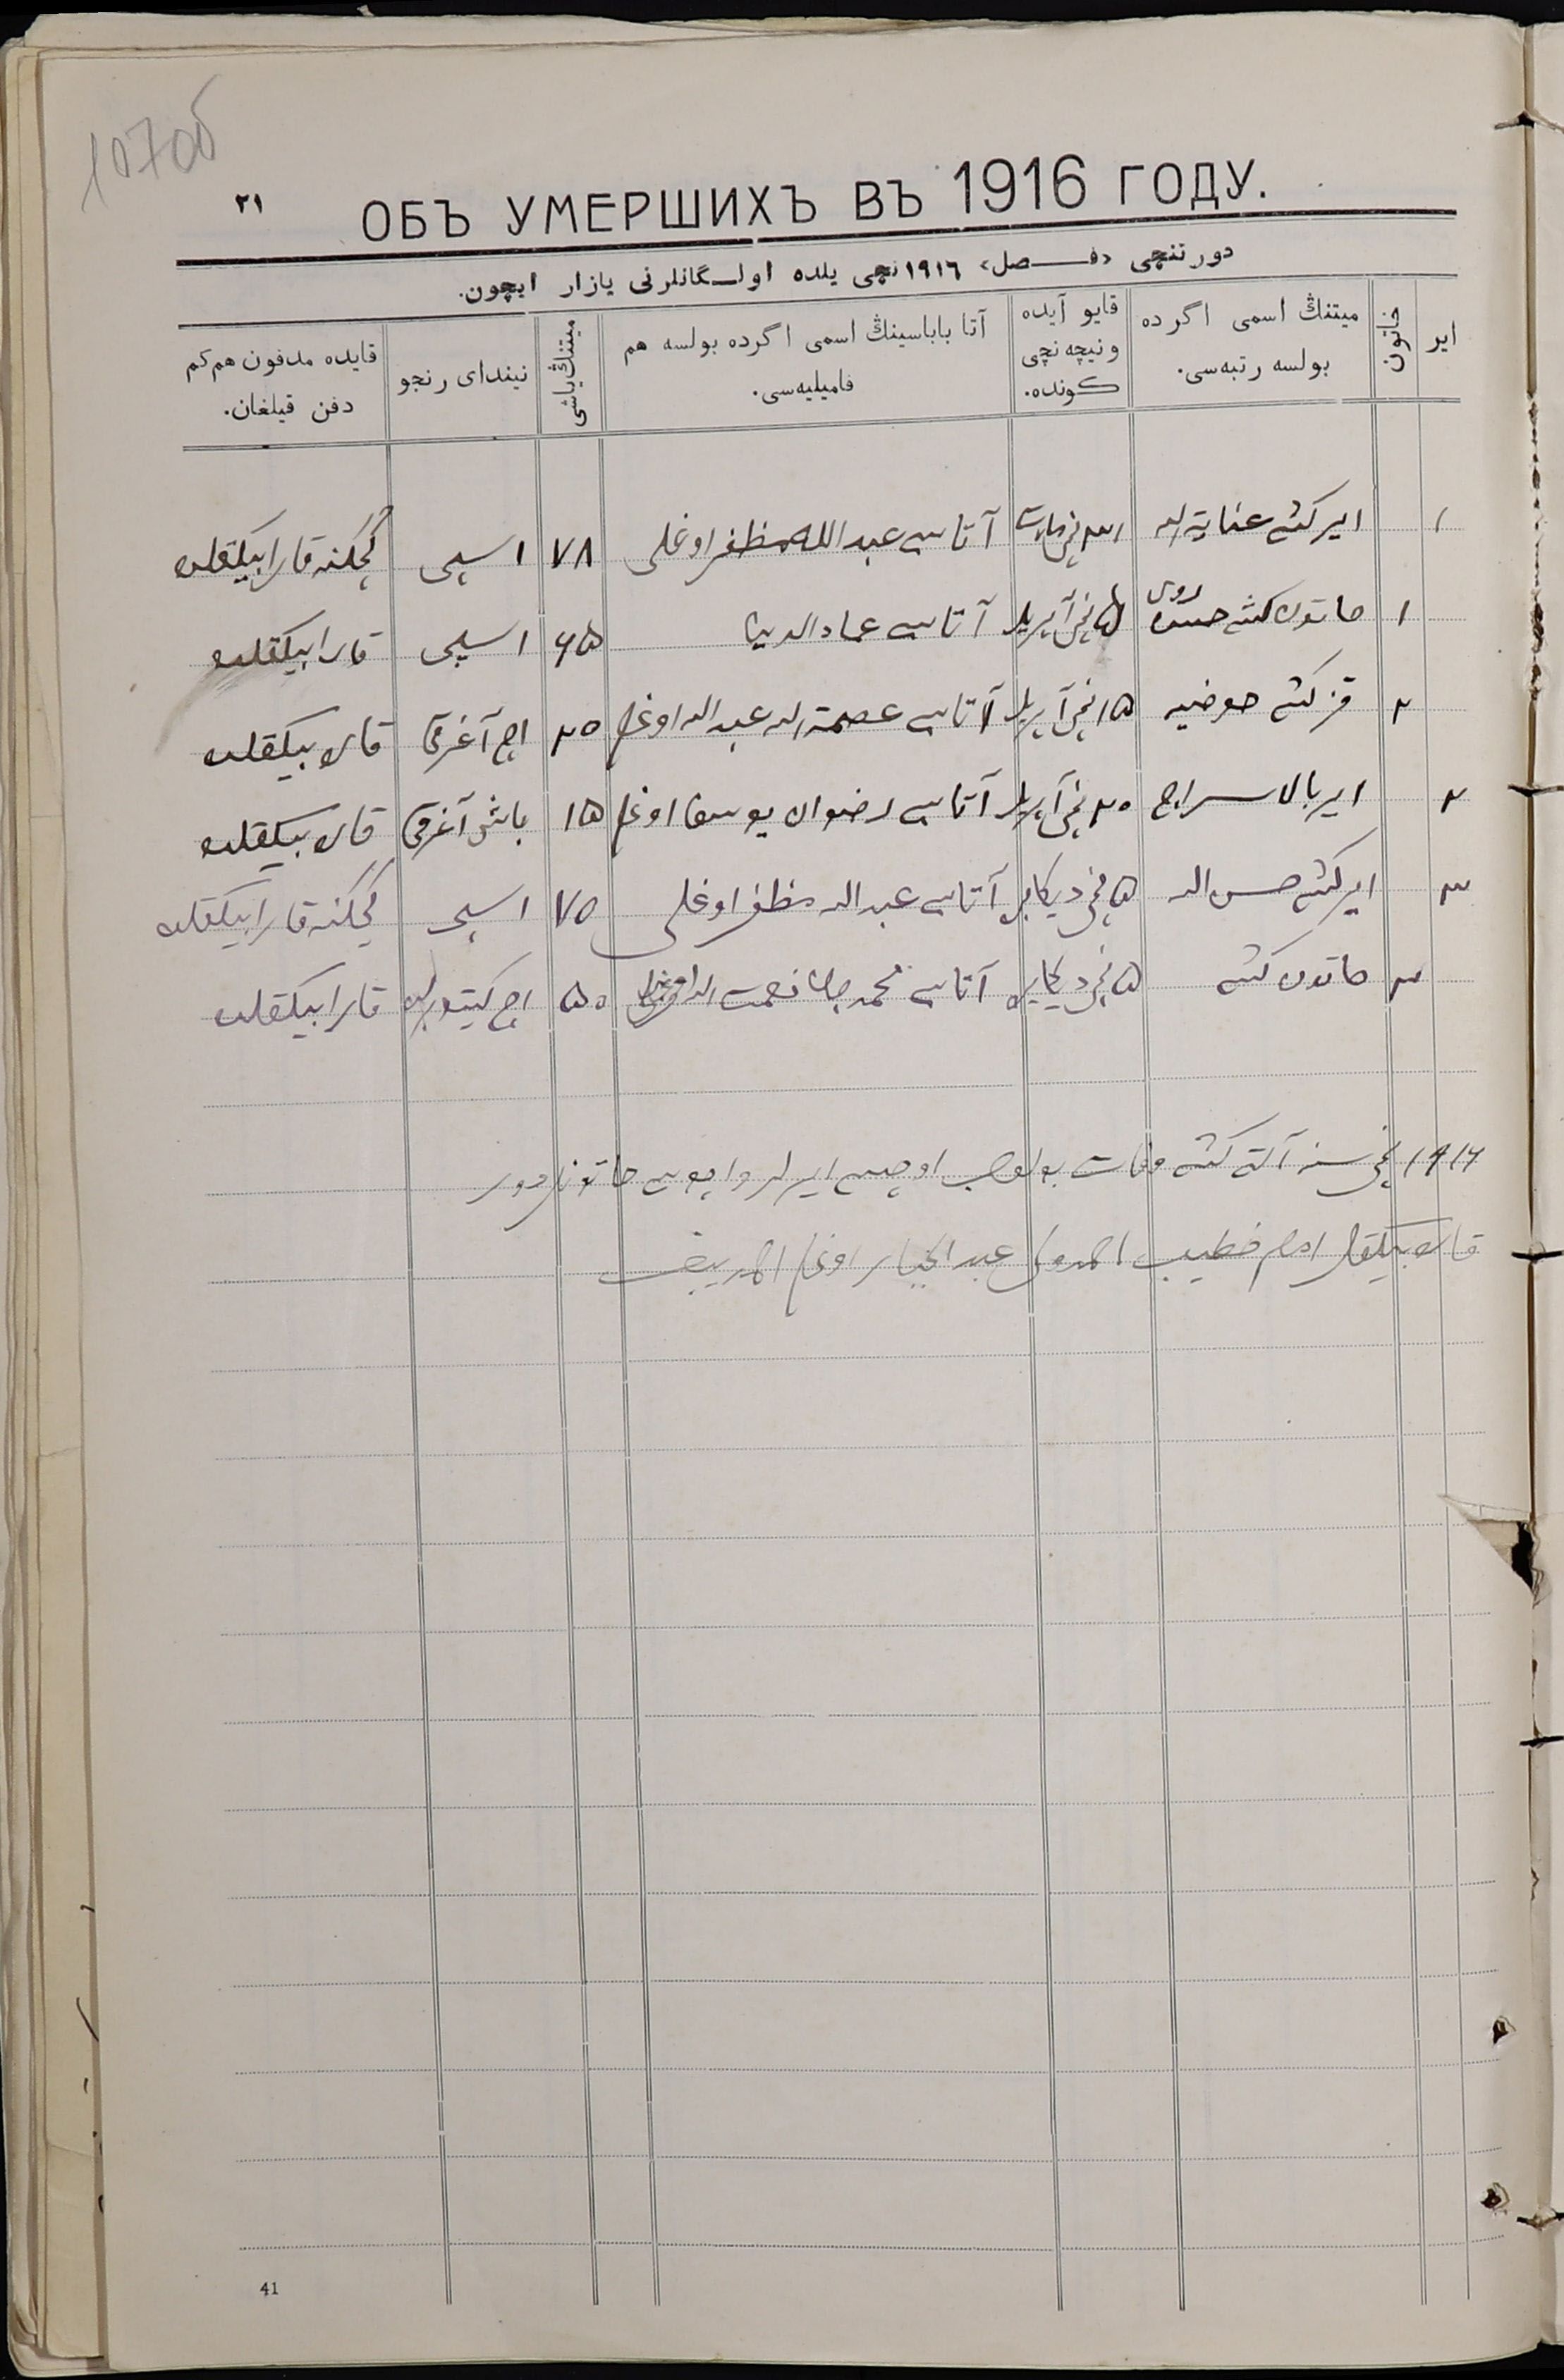 107об
٢١
ОБЪ УМЕРШИХЪ ВЪ 1916 ГОДУ.
دورتنچی «فـــصل» ١٩١٦ نچی یلده اولـگانلرنی یازار ایچون.
ایر
خاتون
میتنڭ اسمی اگرده بولسه رتبه‌سی.
قایو آیده ونیچه نچی کونده.
آتا باباسینڭ اسمی اگرده بولسه هم فامیلیه‌سی.
میتنڭ یاشی
نیندای رنجو
قایده مدفون هم کم دفن قیلغان.
١ ایر کشی عنایة الله آتاسی عبد الله مظفر اوغلی ٧٨ اسیی کچکنه قارا بیکقلده
١ خاتون کشی ٥ نچی آپریل آتاسی عماد الدین ٦٥ اسیی قارا بیکقلده
٢ قز کشی حوضیه ١٥ نچی آپریل آتاسی عصمة الله عبد الله اوغلی ٢٥ اچ آغرقی قارا بیکقلده
٢ ایر بالا سراج ٢٠ نچی آپریل آتاسی رضوان یوسف اوغلی ١٥ باش آغرقی قارا بیکقلده
٣ ایر کشی حسن الله ٥ نچی دیکابر آتاسی عبد الله مظفر اوغلی ٧٥ اسیی کچکنه قارا بیکقلده
٣ خاتون کشی ٥ نچی دیکابر آتاسی محمد جان نعمت الله اوغلی ٥٠ اچ قارا بیکقلده
١٩١٦ نچی سنه آلتی کشی وفات بولوب اوچسی ایرلر واچوسی خاتونلردور
قارا بیکقل امام خطیب احمدولی عبد الجبار اوغلی
41